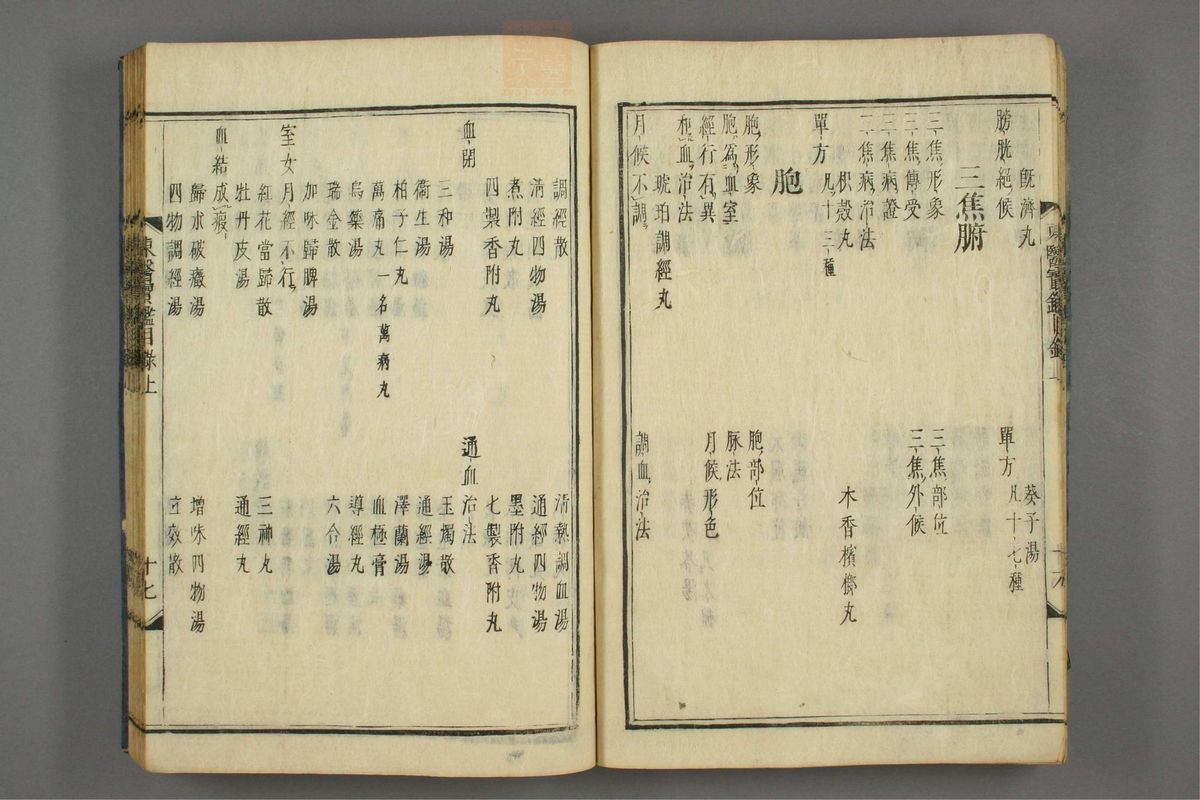 旣濟丸　葵子湯
膀胱絕候　單方凡十七種
三焦腑
三焦形象　三焦部位
三焦傳受　三焦外候
三焦病證
三焦病治法
枳殼丸　木香檳榔丸
單方凡十三種
胞
胞形象　胞部位
胞爲血室　脉法
經行有異　月候形色
和血治法
琥珀調經丸
月候不調　調血治法
調經散　淸熱調血湯
淸經四物湯　通經四物湯
煮附丸　墨附丸
四製香附丸　七製香附丸
血閉　通血治法
三和湯　玉燭散
衞生湯　通經湯
柏子仁丸　澤蘭湯
萬痛丸一名萬病丸　血極膏
烏藥湯　導經丸
瑞金散　六合湯
加味歸脾湯
室女月經不行
紅花當歸散　三神丸
牡丹皮湯　通經丸
血結成瘕
歸朮破癥湯　增味四物湯
四物調經湯　立效散
東醫寶鑑目錄上
十七